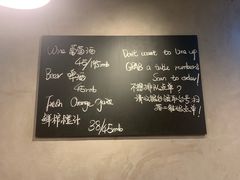 Wine 葡萄酒
45/195rmb
Beer 啤酒
45rmb
Fresh Orange Juice
鲜榨橙汁 38/45rmb
Don't want to line up
Grab a table number
Scan to order!
不想排队点单?
请
扫
二维码点单!